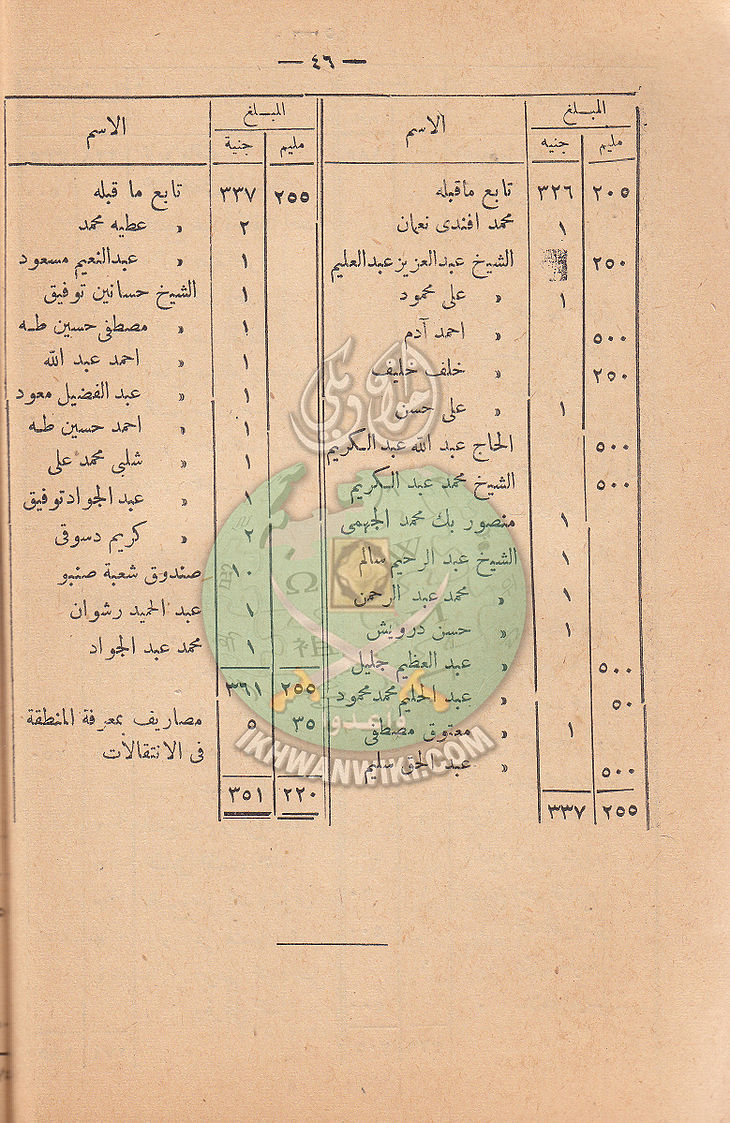 — ٤٦ —
المبلغ الاسم
مليم جنيه
٢٠٥ ٣٢٦ تابع ماقبله
١ محمد افندى نعمان
٢٥٠ الشيخ عبدالعزيز عبدالعليم
١ » على محمود
٥٠٠ » احمد آدم
٢٥٠ » خلف خليف
١ » على حسن
٥٠٠ الحاج عبد الله عبد الكريم
٥٠٠ الشيخ محمد عبد الكريم
١ منصور بك محمد الجهمى
١ الشيخ عبد الرحيم سالم
١ » محمد عبد الرحمن
١ » حسن درويش
٥٠٠ » عبد العظيم جليل
٥٠ » عبد الحليم محمد محمود
١ » معتوق مصطفى
٥٠٠ » عبد الحق سليم
٢٥٥ ٣٣٧
المبلغ الاسم
مليم جنية
٢٥٥ ٣٣٧ تابع ما قبله
٢ » عطيه محمد
١ » عبدالنعيم مسعود
١ الشيخ حسانين توفيق
١ » مصطفى حسين طه
١ » احمد عبد الله
١ » عبد الفضيل معود
١ » احمد حسين طه
١ » شلبى محمد على
١ » عبد الجواد توفيق
٢ » كريم دسوقى
١٠ صندوق شعبة صنبو
١ عبد الحميد رشوان
١ محمد عبد الجواد
٢٥٥ ٣٦١
٣٥ ٥ مصاريف بمعرفة المنطقة
فى الانتقالات
٢٢٠ ٣٥١
اخوان ويكي
وأعدوا
IKHWANWIKI.COM